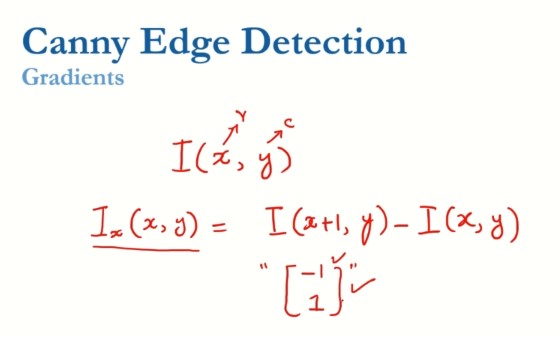 Canny Edge Detection
Gradients
r c
I(x, y)
I_x(x, y) = I(x+1, y) - I(x, y)
" [-1
1] "